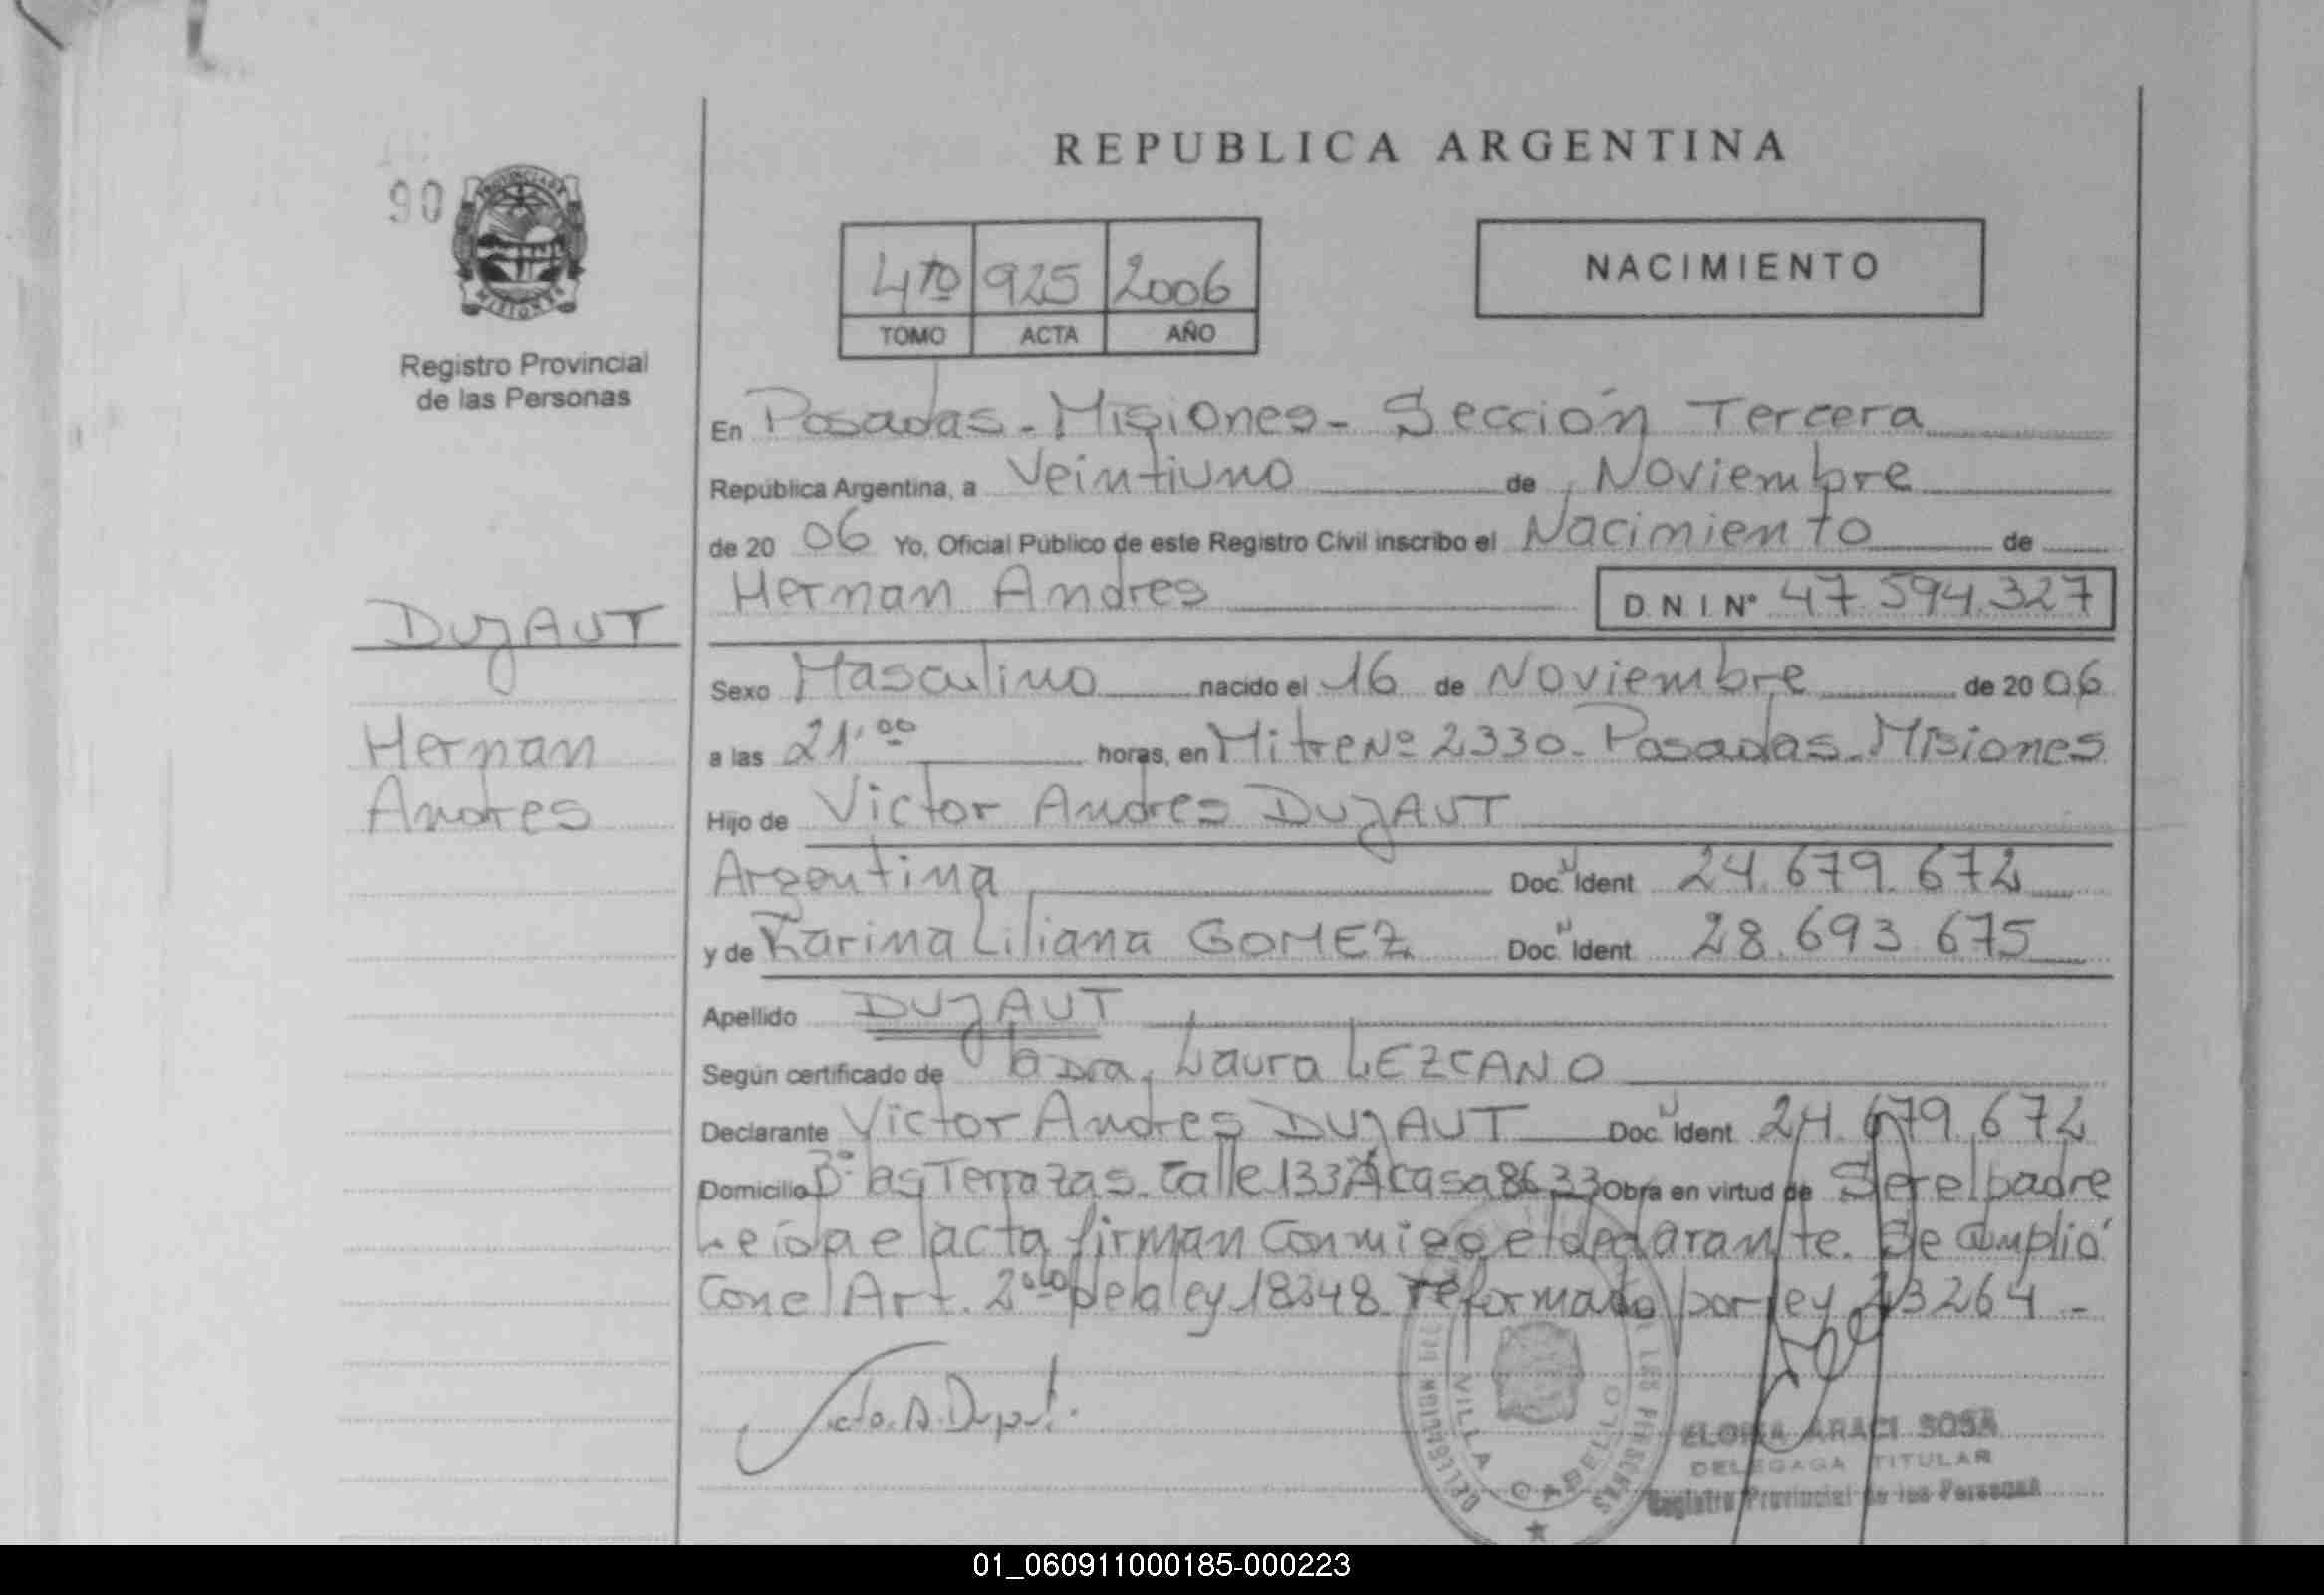 REPUBLICA ARGENTINA
90
PROVINCIA DE
MISIONES
Registro Provincial
de las Personas
4to 925 2006
TOMO ACTA AÑO
NACIMIENTO
En Posadas - Misiones - Sección Tercera
República Argentina, a Veintiuno de Noviembre
de 20 06 Yo, Oficial Público de este Registro Civil inscribo el Nacimiento de
Hernan Andres D.N.I. Nº 47.594.327
DUJAUT
Hernan
Andres
Sexo Masculino nacido el 16 de Noviembre de 20 06
a las 21,00 horas, en Mitre Nº 2330 - Posadas - Misiones
Hijo de Victor Andres DUJAUT
Argentina Doc. Ident 24.679.672
y de Karina Liliana GOMEZ Doc. Ident 28.693.675
Apellido DUJAUT
Según certificado de la Dra. Laura LEZCANO
Declarante Victor Andres DUJAUT Doc. Ident 24.679.672
Domicilio Bº las Terrazas. Calle 133 A casa 8633 Obra en virtud de Ser el padre
Leída el acta firman Conmigo el declarante. Se Cumplió
Con el Art. 2do de la ley 18248 reformado por ley 23264 -
VILLA CABELLO
ARACI SOSA
DELEGADA TITULAR
Registro Provincial de las Personas
01_060911000185-000223